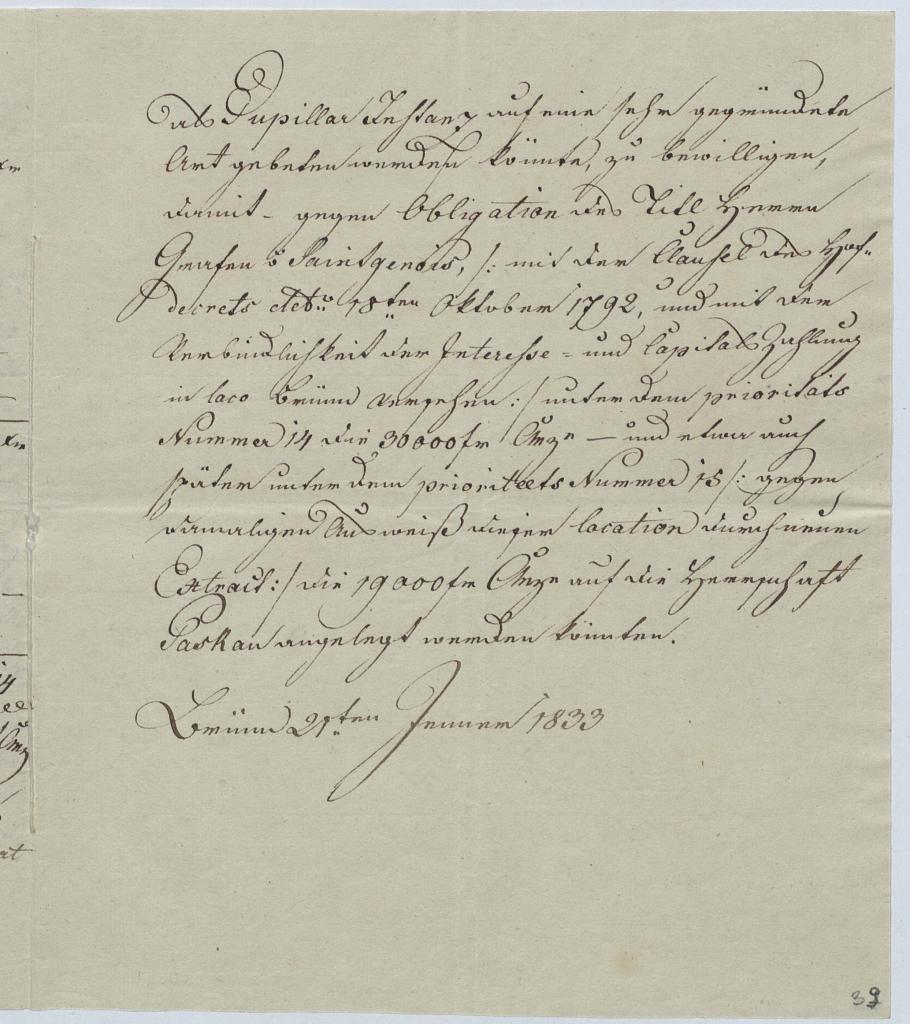 als Pupillar Instanz auf eine sehr gegründete
Art gebeten werden könnte, zu bewilligen,
damit - gegen Obligation des Titl Herrn
Grafen v Saintgenois, /: mit der Clausel des Hof-
decrets ddto 18ten Oktober 1792, und mit der
Verbindlichkeit der Interesse- und Capitals Zahlung
in loco Brünn versehen :/ unter dem prioritäts
Nummer 14 die 30000 fr CMze — und etwa auch
später unter dem prioritaets Nummer 15 /: gegen
damaligen Ausweiß dieser location durch neuen
Extract :/ die 19000 fr CMze auf die Herrschaft
Paskau angelegt werden könnten.
Brünn 21ten Jenner 1833
14
at
39